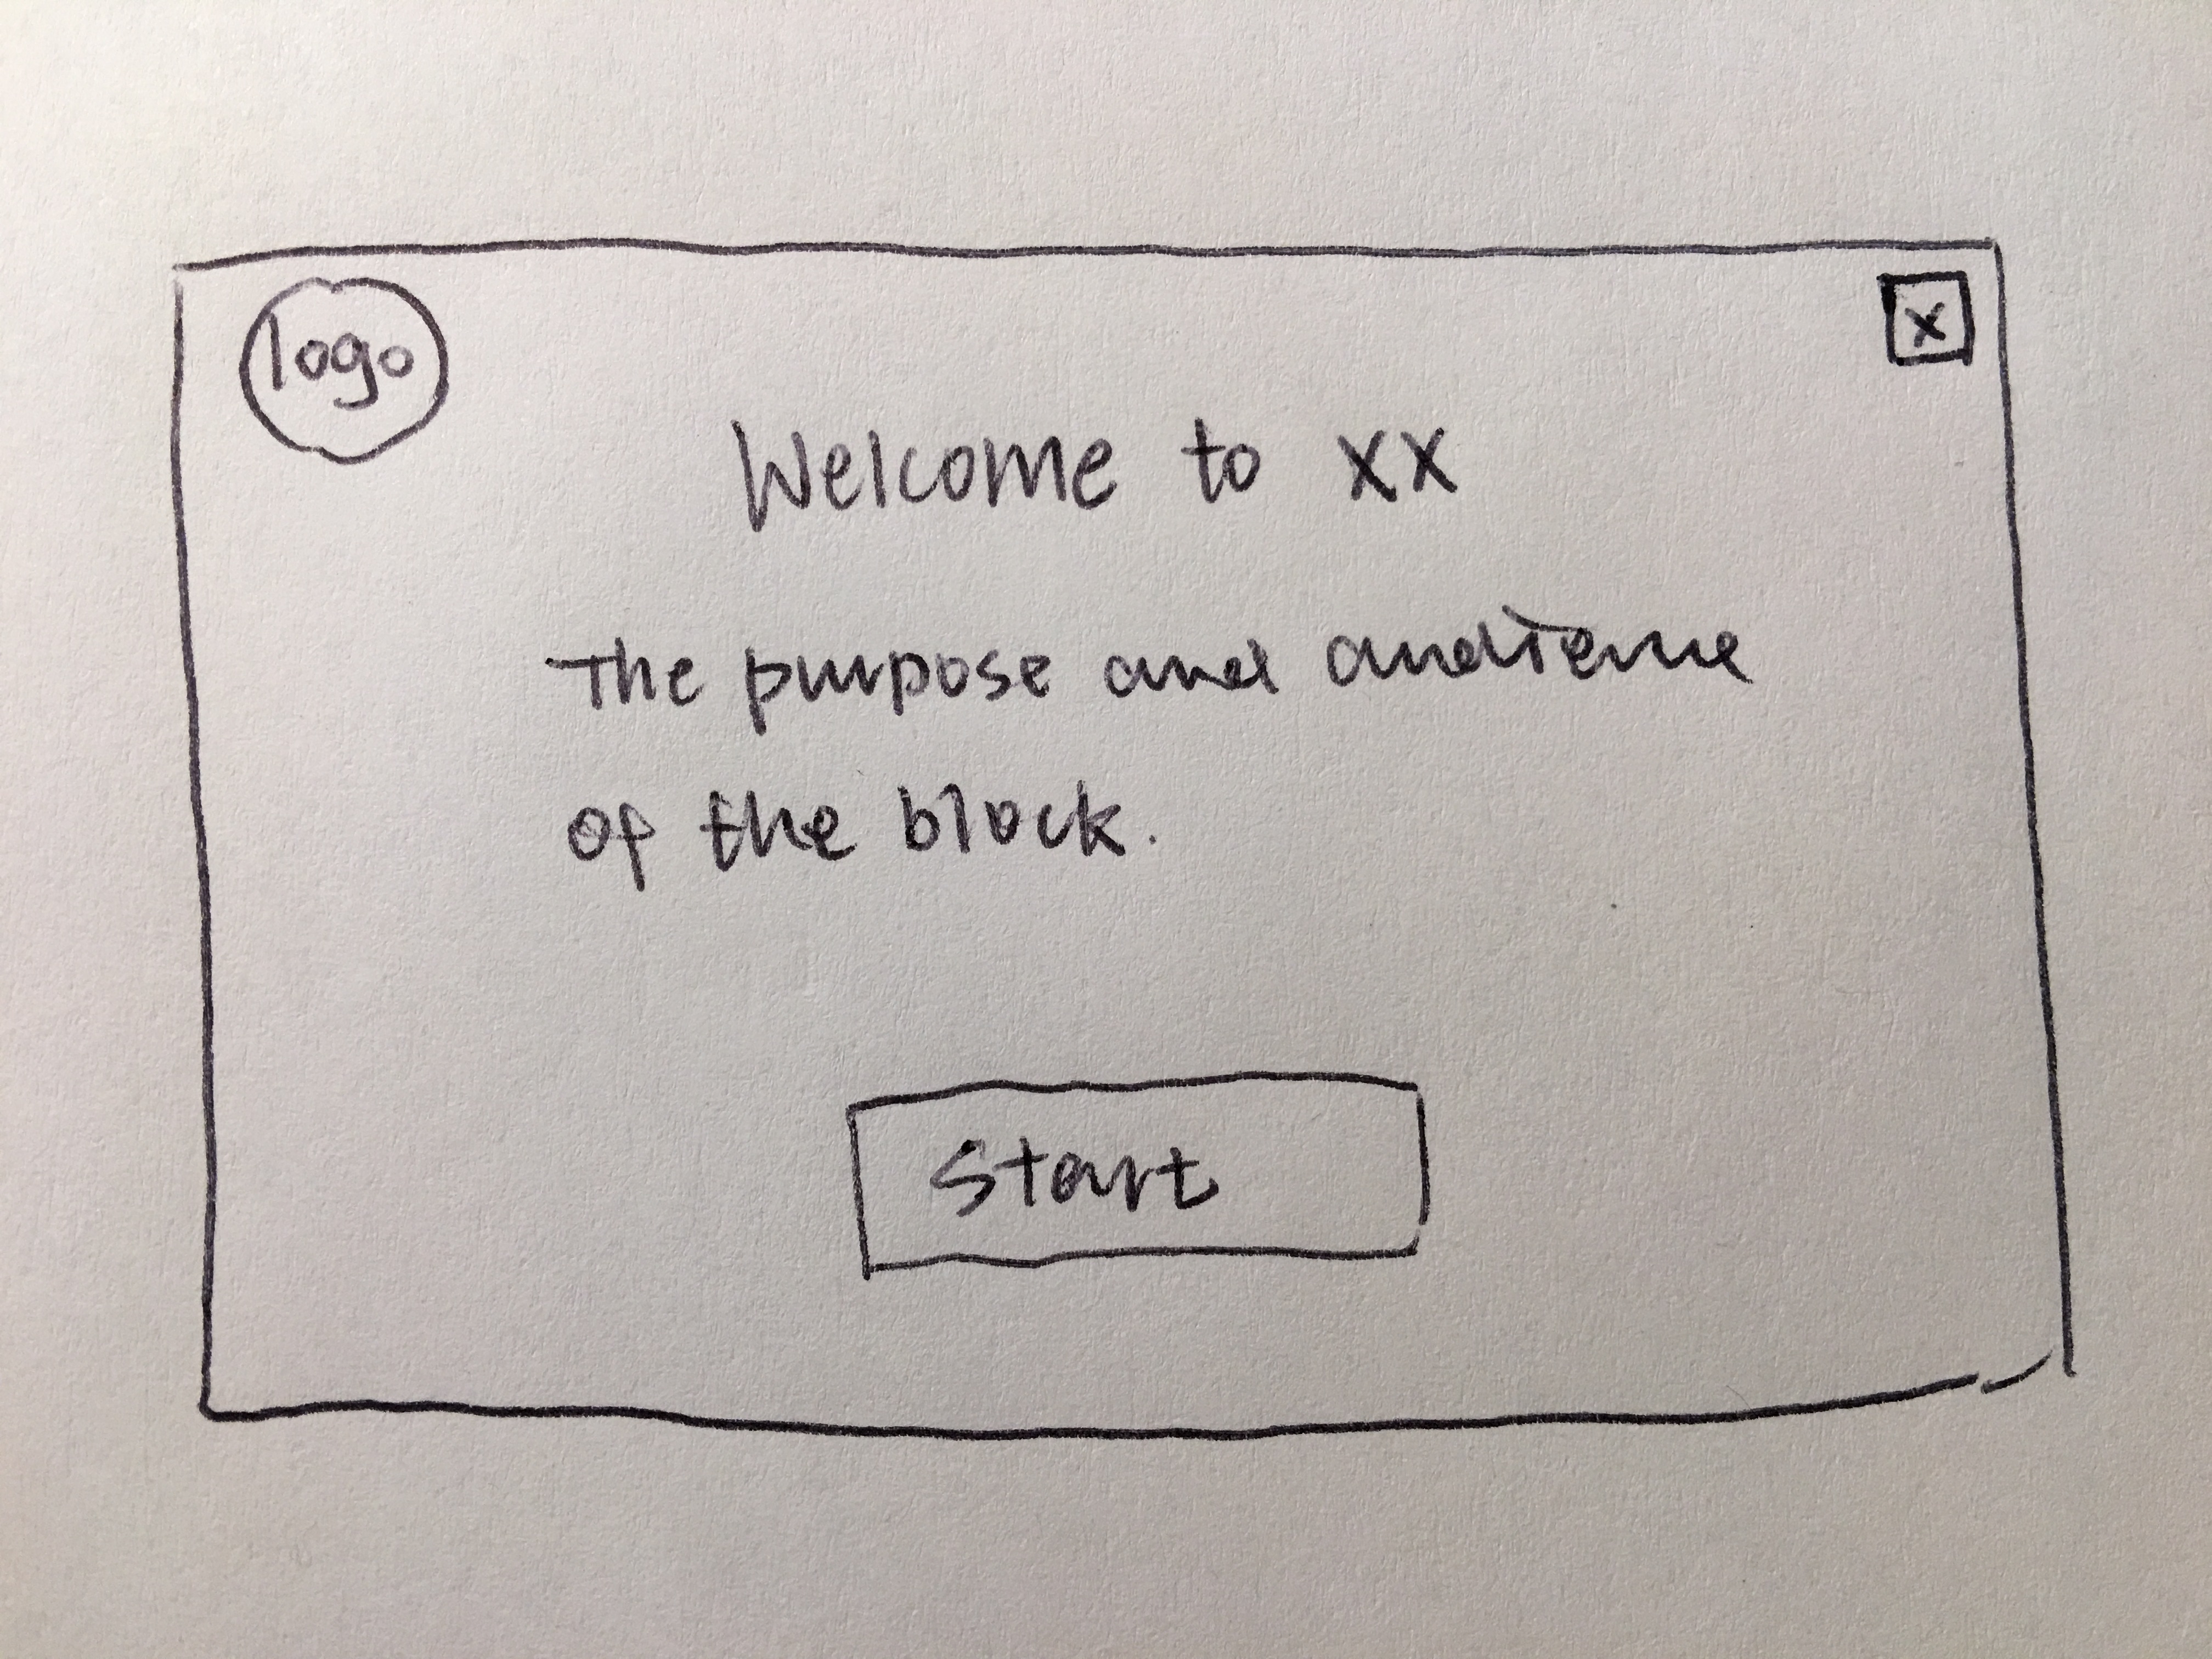 logo
x
Welcome to xx
The purpose and audience
of the block.
Start